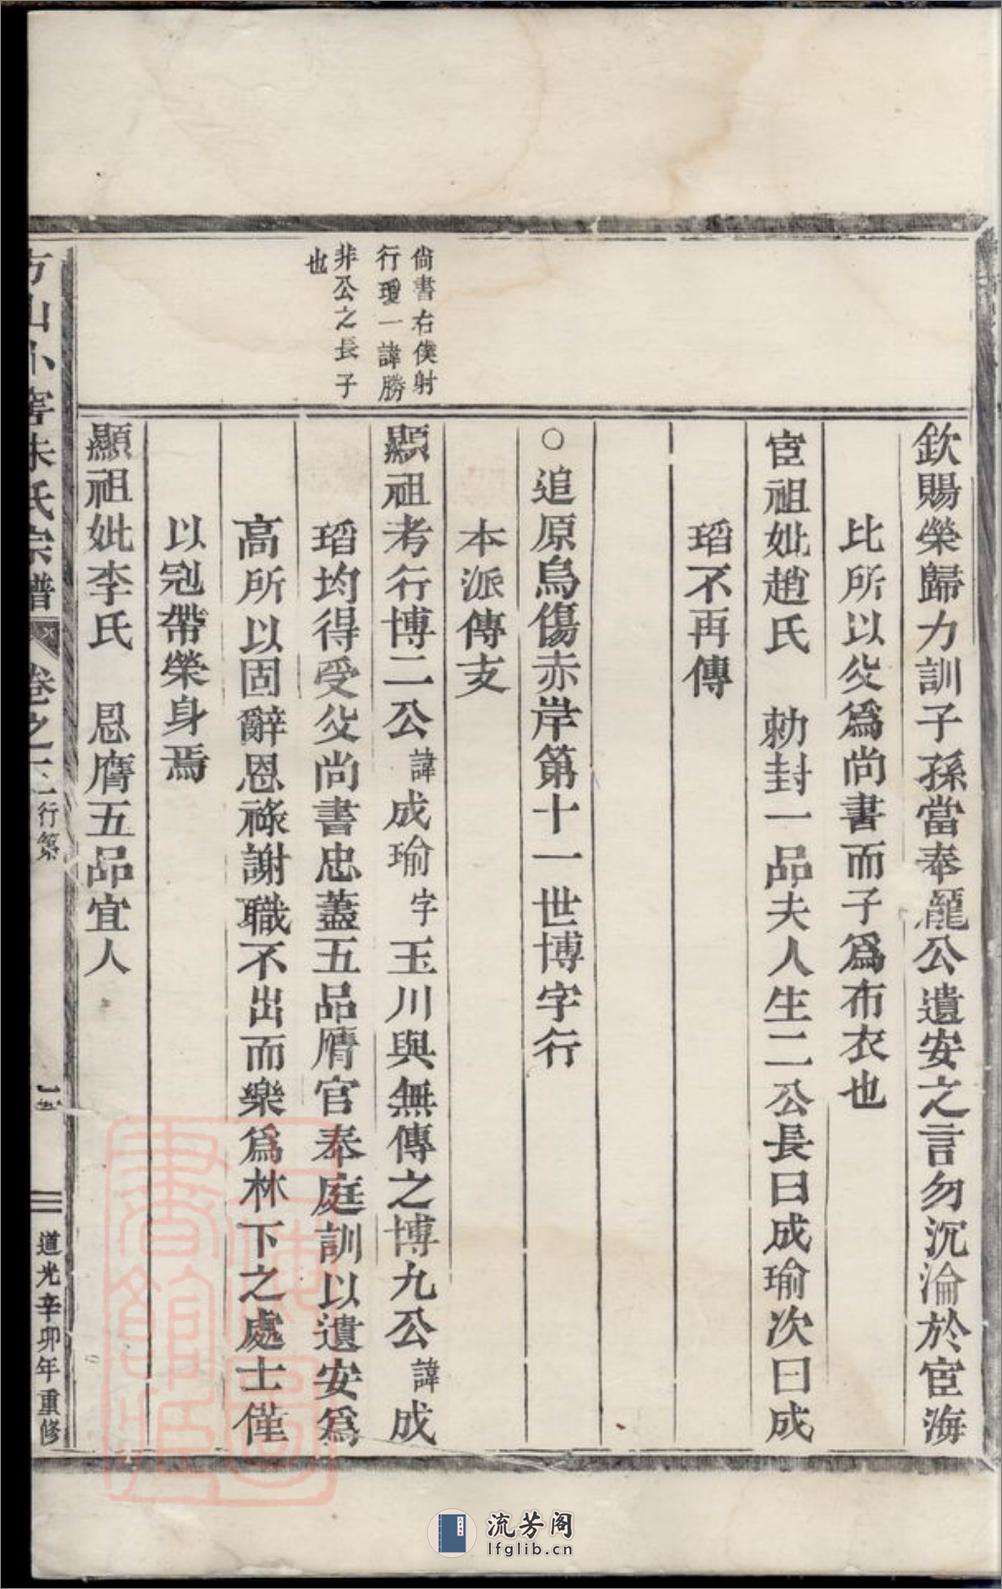 尚書右僕射
行璦一諱勝
非公之長子
也
欽賜榮歸力訓子孫當奉龐公遺安之言勿沉淪於宦海
比所以父為尚書而子為布衣也
宦祖妣趙氏 勅封一品夫人生二公長曰成瑜次曰成
瑫不再傳
○追原烏傷赤岸第十一世博字行
本派傳支
顯祖考行博二公諱成瑜字玉川與無傳之博九公諱成
瑫均得受父尚書忠蓋五品膺官奉庭訓以遺安為
高所以固辭恩祿謝職不出而樂為林下之處士僅
以冠帶榮身焉
顯祖妣李氏 恩膺五品宜人
方山小窖朱氏宗譜 卷之 行第
道光辛卯年重修
上海圖
書館藏
流芳阁
lfglib.cn